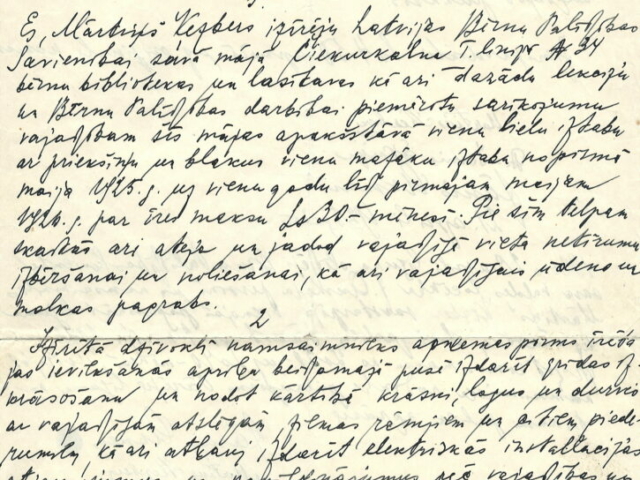 Es, Mārtiņš Ķezbers izīrēju Latvijas Bērnu Palīdzības
Savienībai savā mājā Čiekurkalna I. līnijā № 34
bērnu bibliotekas un lasītavas kā arī dažādu lekciju
un Bērnu Palīdzības darbībai piemērotu sarīkojumu
vajadzībām šīs mājas apakšstāvā vienu lielu istabu
ar priekšiņu un blakus vienu mazāku istabu no pirmā
maija 1925. g. uz vienu gadu līdz pirmajam maijam
1926. g. par īres maksu Ls 30.- mēnesī. Pie šīm telpām
skaitās arī ateja un jādod vajadzīgā vieta netīrumu
izbēršanai un noliešanai, kā arī vajadzīgais ūdens un
malkas pagrabs.
2
Izīrētā dzīvoklī namsaimnieks apņemas pirms īrnie-
jas ievilkšanās aprīļa beidzamajā pusē izdarīt grīdas iz-
krāsošanu un nodot kārtībā krāsni, logus un durvis
ar vajadzīgām atslēgām, ziemas rāmjiem un citiem piede-
rumiem, kā arī atļauj izdarīt elektriskās installācijas